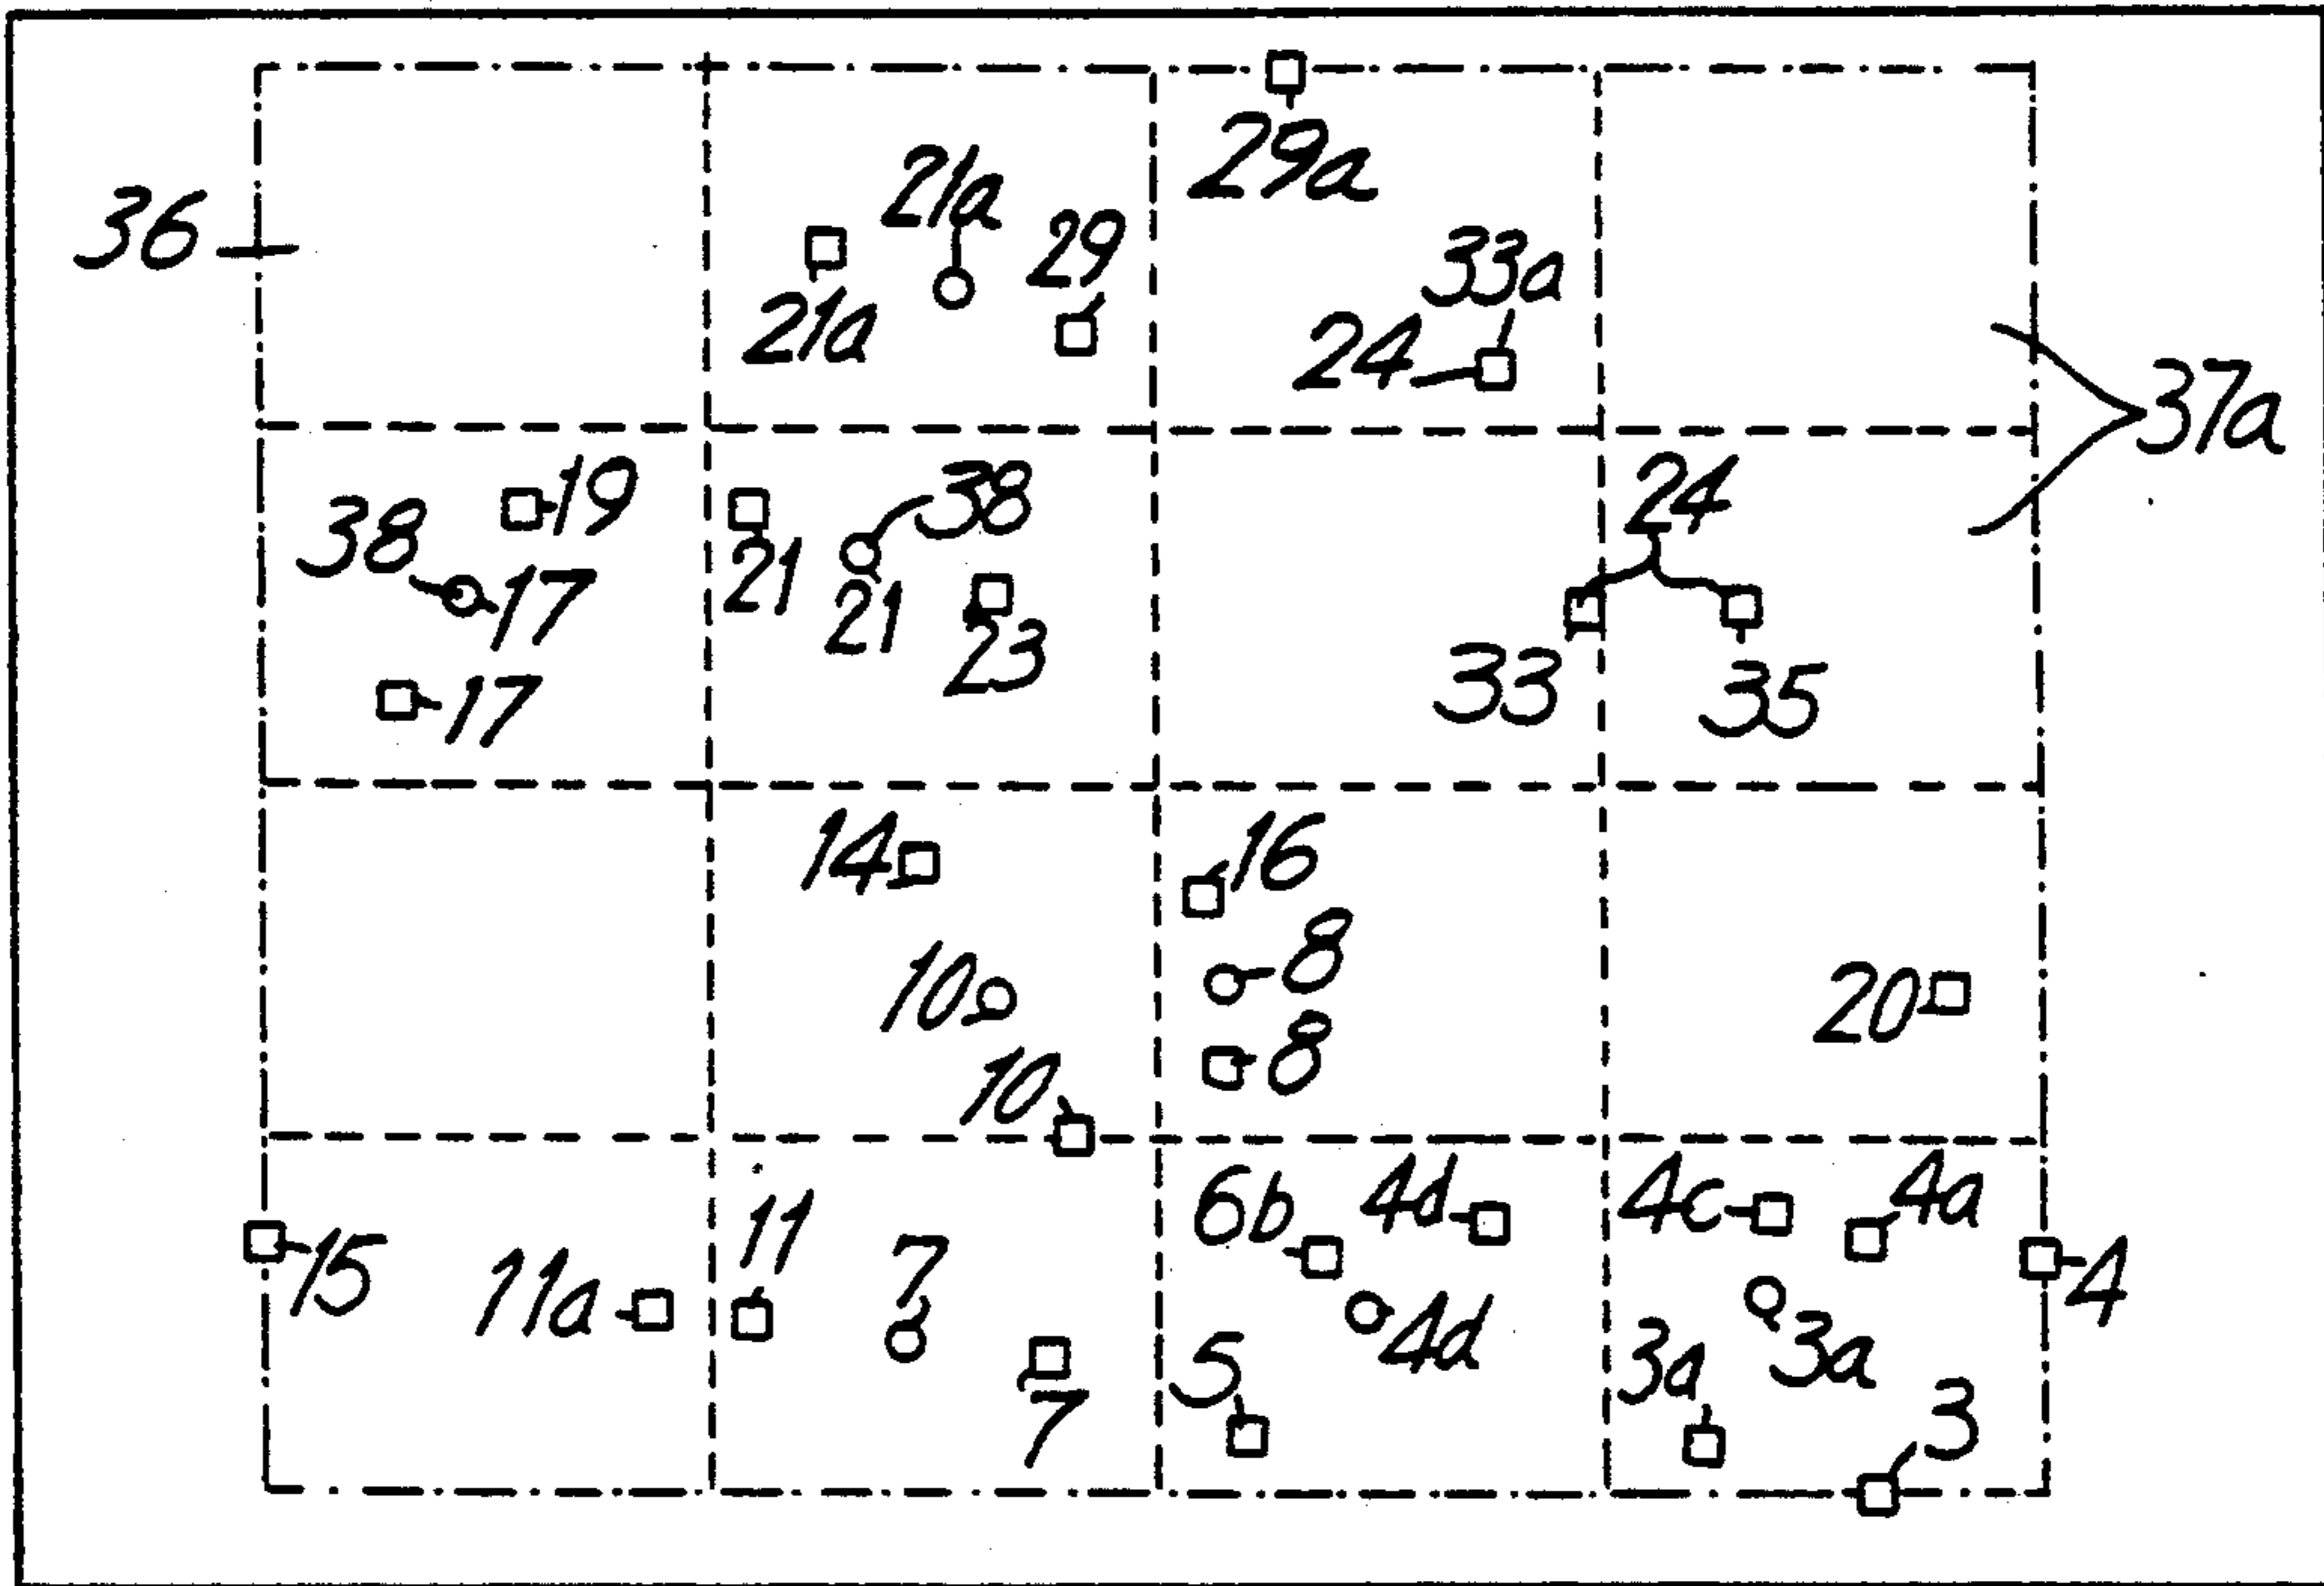 29a
36
21a
29
21a
33a
24
37a
38
19
17
17
21
38
21
23
24
33
35
14
16
10
8
8
10
20
15
11a
11
7
7
6b
4d
4d
5
4c
4a
4
3a
3a
3